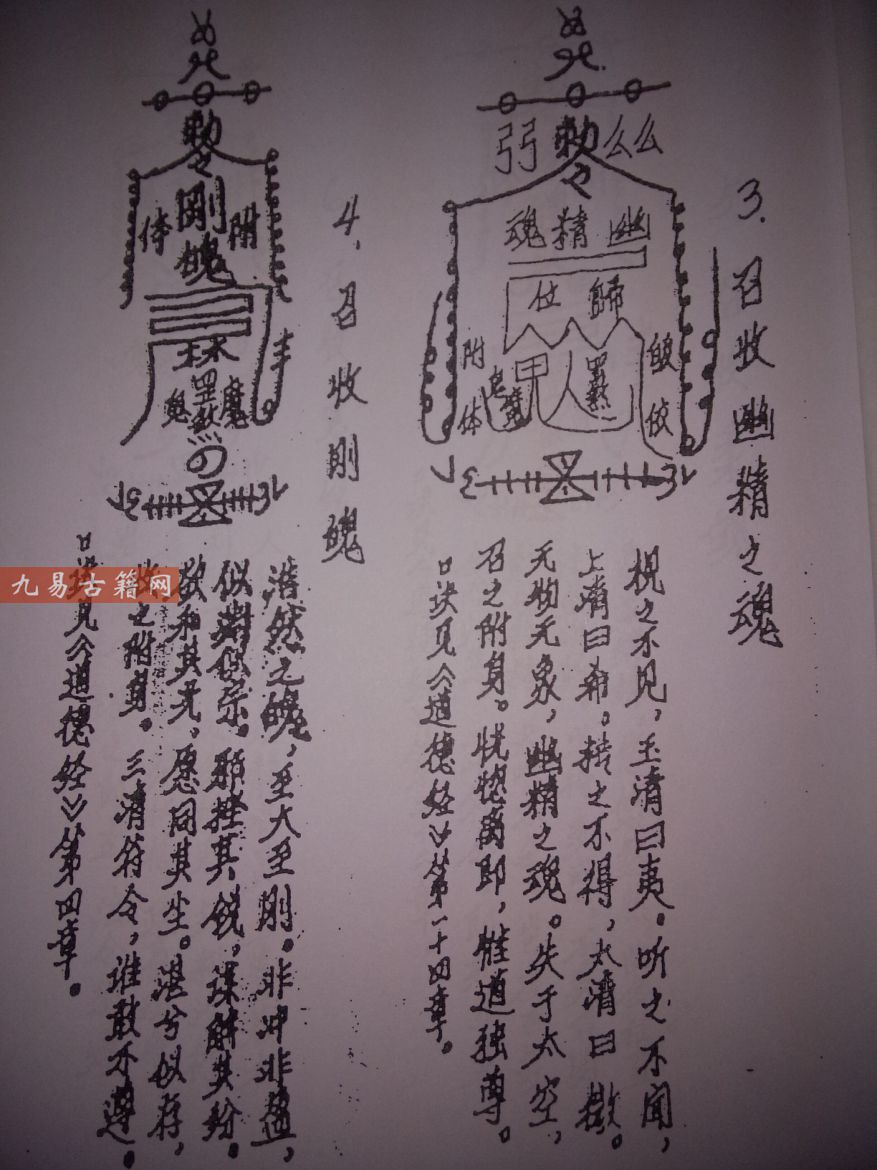 3.召收幽精之魂
勅令
弜
幺幺
幽精魂
归位
附体
皈依
视之不见，玉清曰夷。听之不闻，
上清曰希。抟之不得，太清曰微。
无物无象，幽精之魂。失于太空，
召之附身。恍惚离即，惟道独尊。
口诀见《道德经》第一十四章。
4.召收刚魄
勅令
刚魄
附体
浩然之魄，至大至刚。非冲非盈，
似渊似宗。
欲和其光，愿同其尘。湛兮似存，
收之附身。三清符令，谁敢不遵。
口诀见《道德经》第四章。
九易古籍网